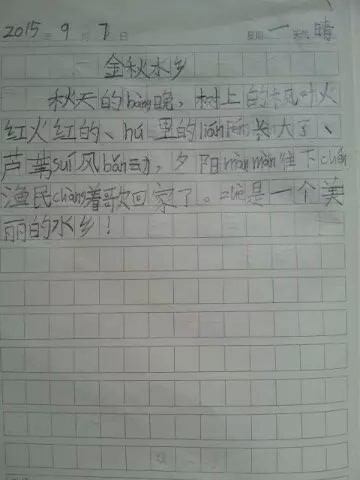 2015年9月7日 星期一 天气晴
金秋水乡
秋天的bàng晚，树上的枫叶火
红火红的、hú里的lián péng长大了、
芦苇suí风bǎi动，夕阳màn màn往下chén
渔民chàng着歌回家了。zhè是一个美
丽的水乡！